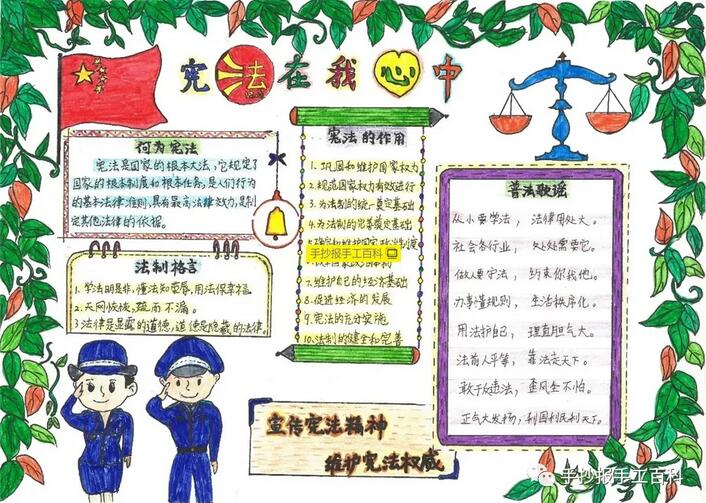 宪法在我心中
何为宪法
宪法是国家的根本大法,它规定了
国家的根本制度和根本任务,是人们行为
的基本法律准则,具有最高法律效力,是制
定其他法律的依据。
法制格言
1.学法明是非,懂法知荣辱,用法保幸福
2.天网恢恢,疏而不漏。
3法律是显露的道德,道德是隐藏的法律。
宪法的作用
1.巩固和维护国家权力
2.规范国家权力有效进行
3.为法制的统一奠定基础
4.为法制的完善奠定基础
手抄报手工百科
7.维护自己的经济基础
8.促进经济的发展
9.宪法的充分实施
10.法制的健全和完善
普法歌谣
从小要学法, 法律用处大。
社会各行业, 处处需要它。
做人要守法, 约束你我他。
办事懂规则, 生活秩序化。
用法护自己, 理直胆气大。
法前人平等, 靠法定天下。
敢于斗违法, 歪风全不怕。
正气大发扬, 利国利民利天下。
宣传宪法精神
维护宪法权威
手抄报手工百科